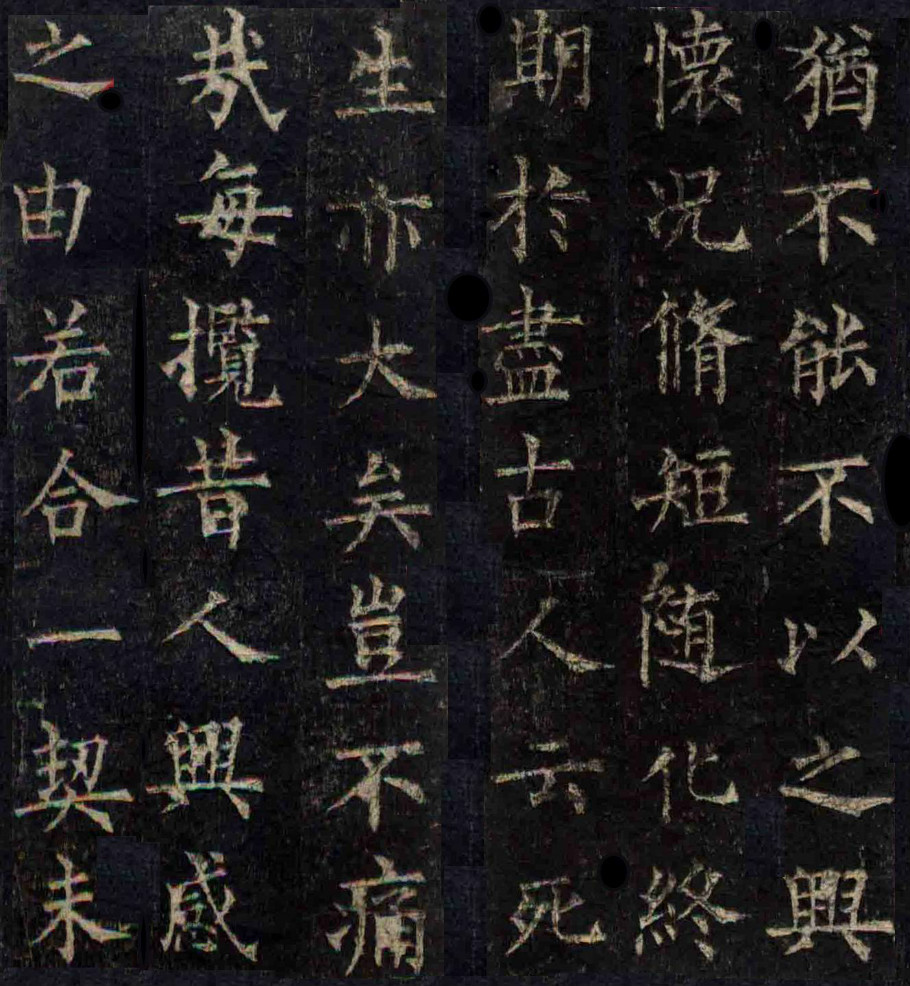 猶不能不以之興
懷况脩短随化終
期於盡古人云死
生亦大矣豈不痛
哉每攬昔人興感
之由若合一契未